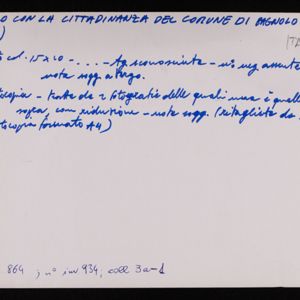 O CON LA CITTADINANZA DEL COMUNE DI BAGNOLO
) (TA
cl. 15x10 - . . . . - Ag. sconosciuta - n° neg. assente
nota sogg. a tergo.
tocopia - tratta da 2 fotografie delle quali una è quella
sopra, con riduzione - nota sogg. (ritagliata da
tocopia formato A4)
864 ; n° inv 934, coll 3a-d